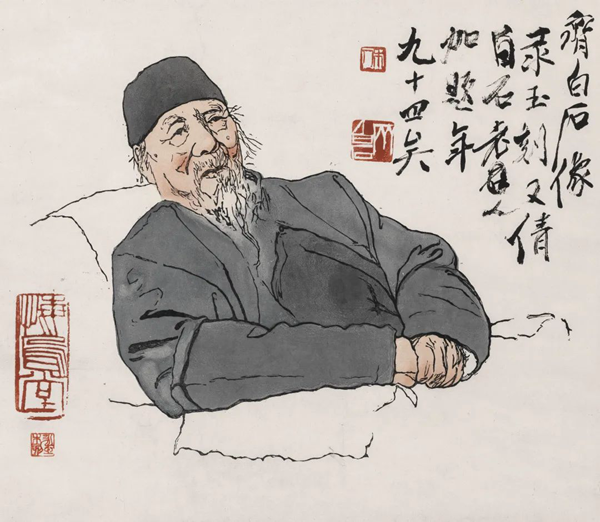 齊白石像
彔玉刻又倩
白石老人
加題年
九十四矣
悔烏堂